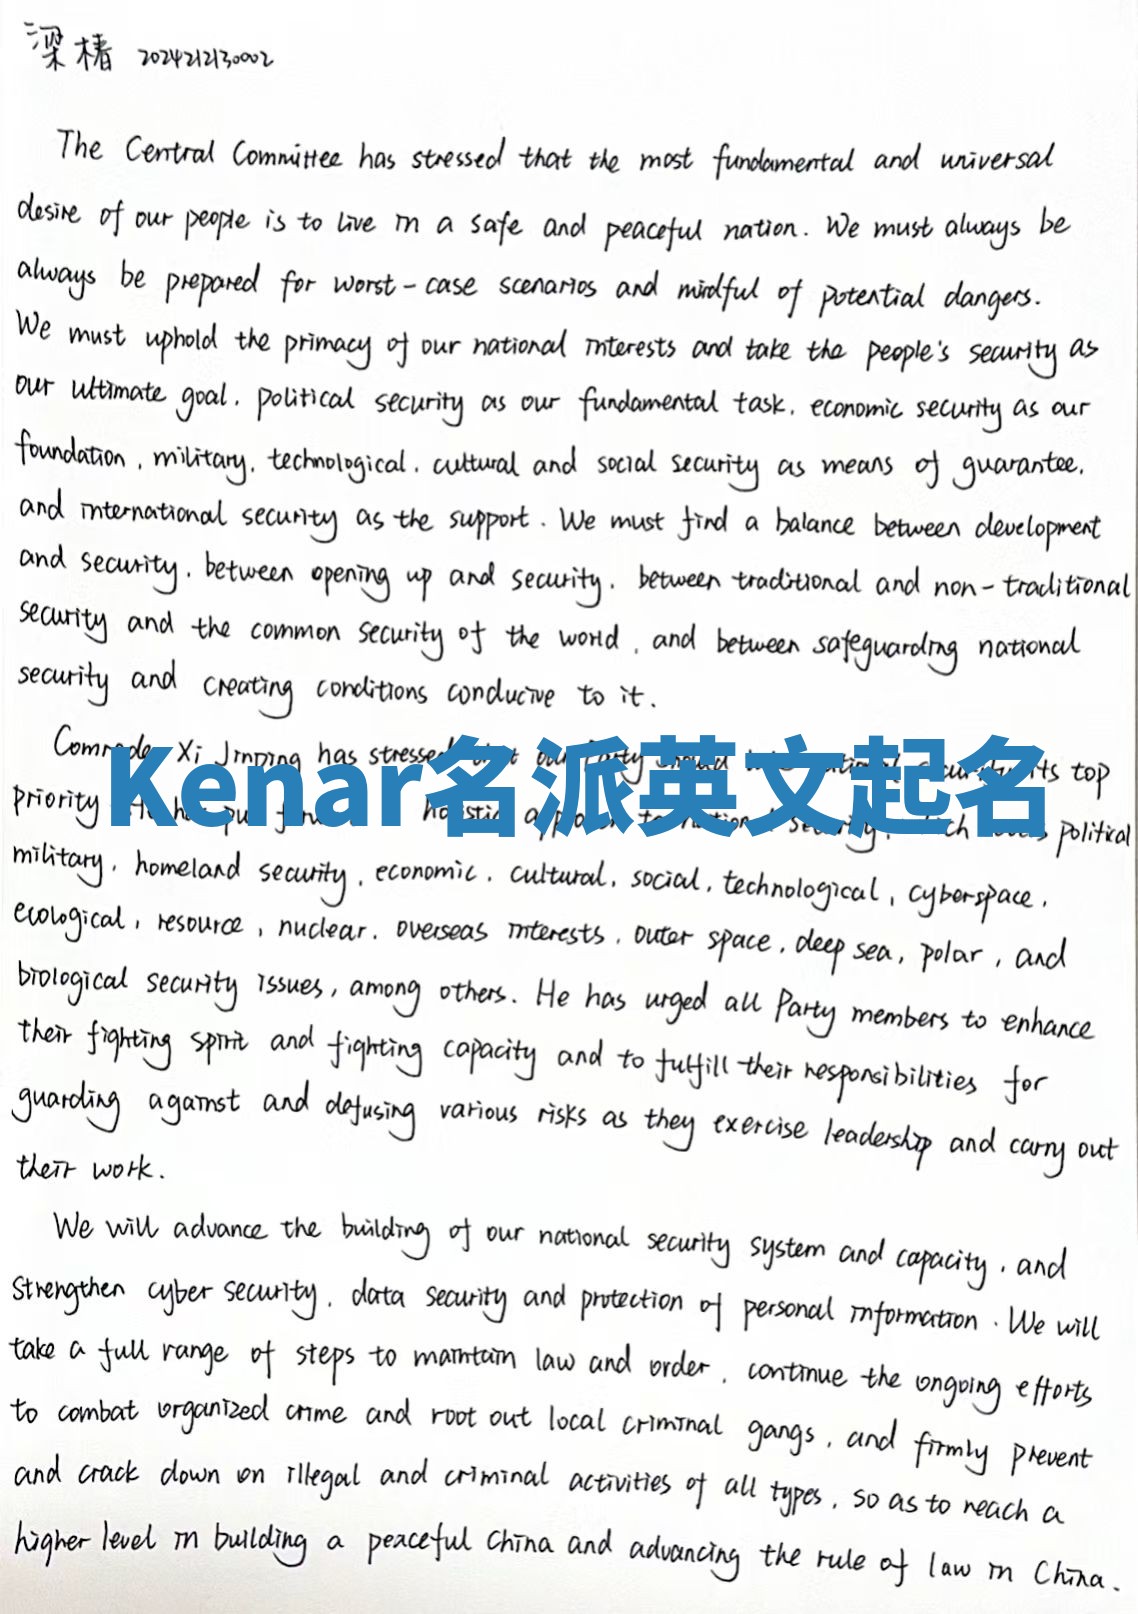 梁椿 2024212130002
The Central Committee has stressed that the most fundamental and universal
desire of our people is to live in a safe and peaceful nation. We must always be
always be prepared for worst-case scenarios and mindful of potential dangers.
We must uphold the primacy of our national interests and take the people's security as
our ultimate goal, political security as our fundamental task, economic security as our
foundation, military, technological, cultural and social security as means of guarantee,
and international security as the support. We must find a balance between development
and security, between opening up and security, between traditional and non-traditional
security and the common security of the world, and between safeguarding national
security and creating conditions conducive to it.
Comrade Xi Jinping has stressed that our Party should its top
Kenar名派英文起名
priority holistic security, political
military, homeland security, economic, cultural, social, technological, cyberspace,
ecological, resource, nuclear, overseas interests, outer space, deep sea, polar, and
biological security issues, among others. He has urged all Party members to enhance
their fighting spirit and fighting capacity and to fulfill their responsibilities for
guarding against and defusing various risks as they exercise leadership and carry out
their work.
We will advance the building of our national security system and capacity, and
strengthen cyber security, data security and protection of personal information. We will
take a full range of steps to maintain law and order, continue the ongoing efforts
to combat organized crime and root out local criminal gangs, and firmly prevent
and crack down on illegal and criminal activities of all types, so as to reach a
higher level in building a peaceful China and advancing the rule of law in China.